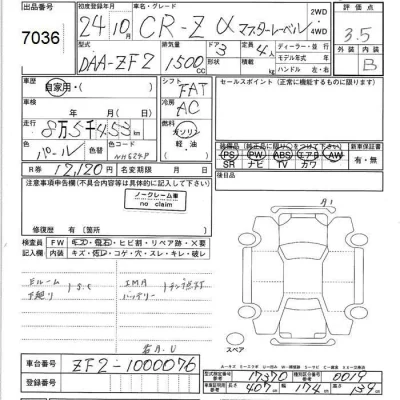 出品番号 初度登録年月 車名・グレード ドア 定員 2WD 評価点
7036 24年10月 CR-Z α マスターレーベル 4WD 3.5
型式 排気量 ドア 定員 ディーラー・並行 外装 内装
DAA-ZF2 1500cc 3 4人 モデル年式 B
ハンドル 左・右
車歴 シフト セールスポイント (正常に機能するものに限ります)
自家用・( ) FAT
車検 冷房
年 月 AC
走行 燃料
8万5千453km ガソリン
色 色替 色コード 軽油
パール NH624P 装備品 (純正品に限り○をつけてください) 新車保証書
R券 12,120円 名変期限 月 日 PS PW ABS エアB AW 有・無
SR ナビ TV カワ
注意事項申告欄(不具合内容等は具体的に記入して下さい)
ノークレーム車
no claim
修復歴 有( )箇所
検査員 FW キズ・飛石・ヒビ割・リペア跡・×要
記入欄 内装 キズ・汚レ・コゲ・穴・スレ・キレ・破レ
Eルーム IMA
バッテリー
スペア
車台番号 ZF2-1000076
登録番号
型式指定番号 17370 類別区分番号 0019
長さ 407cm 幅 174cm 高さ 139cm